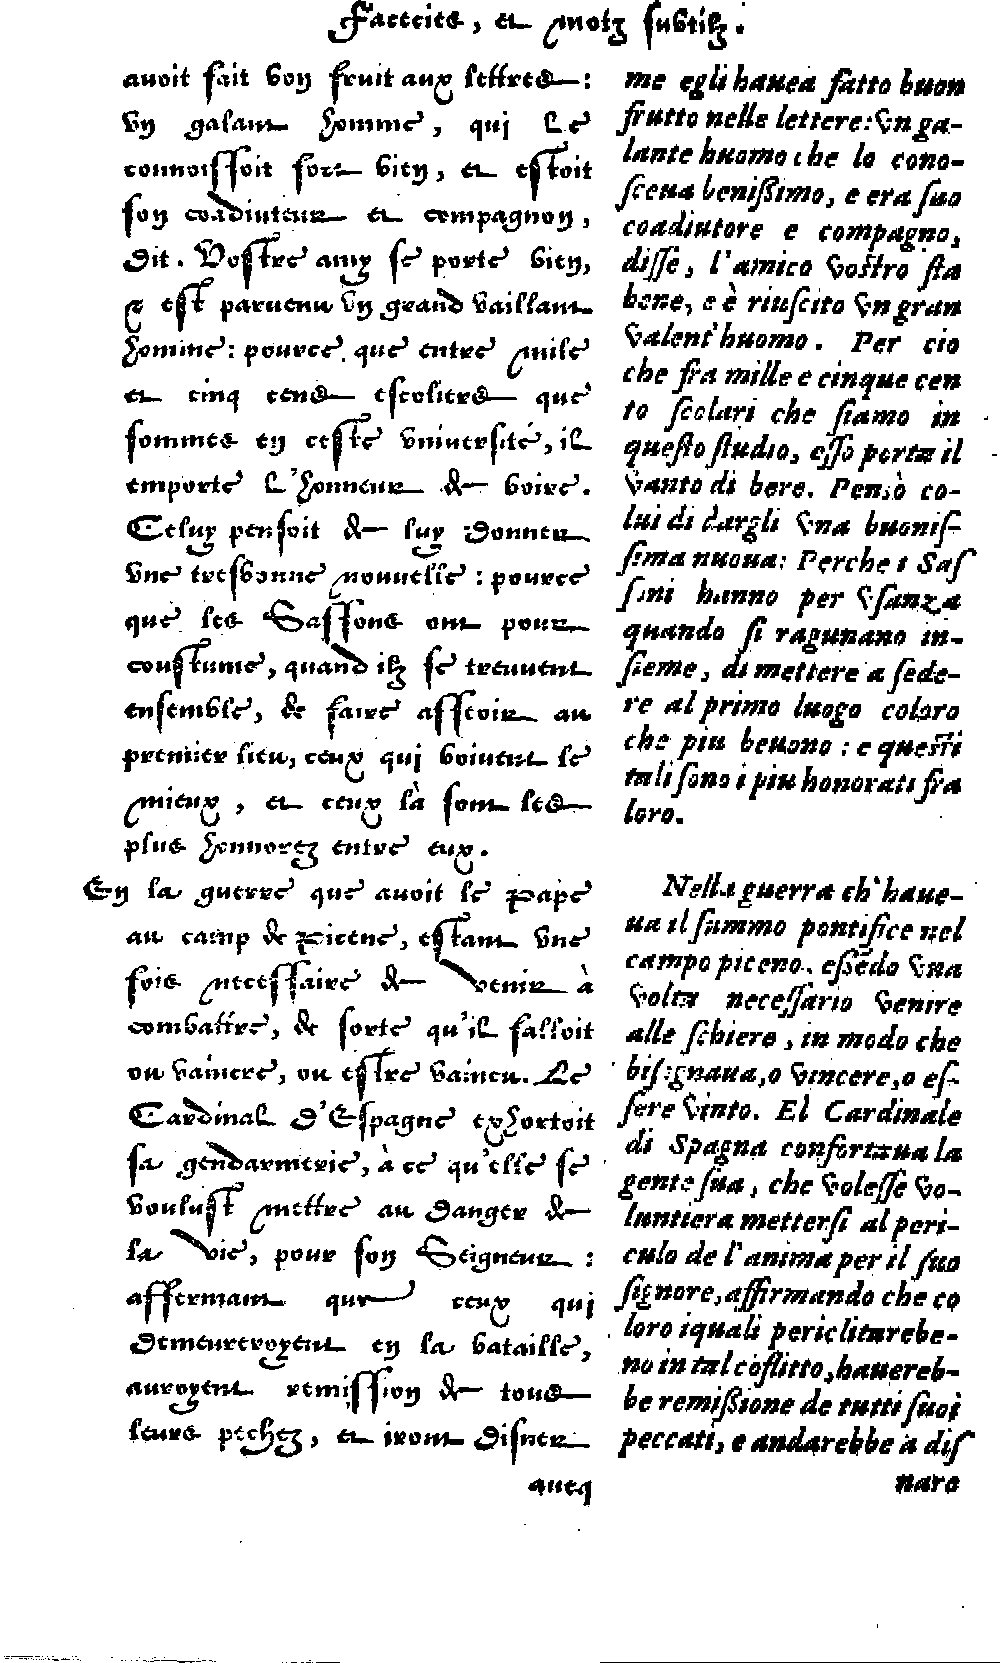 Faceties, et motz subtilz.
auoit fait bon fruit aux lettres :
vn galant homme, qui le
connoissoit fort bien, et estoit
son coadiuteur et compagnon,
dit. Vostre amy se porte bien,
& est paruenu vn grand vaillant
homme : pource que entre mile
et cinq cens escoliers que
sommes en ceste vniuersité, il
emporte l'honneur de boire.
Celuy pensoit de luy donner
vne tresbonne nouuelle : pource
que les Sassons ont pour
coustume, quand ilz se treuuent
ensemble, de faire asseoir au
premier lieu, ceux qui boiuent le
mieux, et ceux là sont les
plus honnorez entre eux.
En la guerre que auoit le Pape
au camp de Picene, estant vne
fois necessaire de venir à
combattre, de sorte qu'il falloit
ou vaincre, ou estre vaincu. Le
Cardinal d'Espagne exhortoit
sa gendarmerie, à ce qu'elle se
voulust mettre au danger de
la vie, pour son Seigneur :
affermant que ceux qui
demeureroyent en la bataille,
auroyent remission de tous
leurs pechez, et iront disner
aueq
me egli hauea fatto buon
frutto nelle lettere: Vn ga-
lante huomo che lo cono-
sceua benißimo, e era suo
coadiutore e compagno,
disse, l'amico vostro sta
bene, e è riuscito vn gran
valent'huomo. Per cio
che fra mille e cinque cen
to scolari che siamo in
questo studio, esso porta il
vanto di bere. Pensò co-
lui di dargli vna buonis-
sima nuoua: Perche i Sas
sini hanno per vsanza
quando si ragunano in-
sieme, di mettere a sede-
re al primo luogo coloro
che piu beuono : e questi
tali sono i piu honorati fra
loro.
Nella guerra ch'haue-
ua il summo pontifice nel
campo piceno, essẽdo vna
volta necessario venire
alle schiere, in modo che
bisognaua, o vincere, o es-
sere vinto. El Cardinale
di Spagna confortaua la
gente sua, che volesse vo-
luntiera mettersi al peri-
culo de l'anima per il suo
signore, affirmando che co
loro iquali periclitarebe-
no in tal cõflitto, hauereb-
be remißione de tutti suoi
peccati, e andarebbe a dis
nare